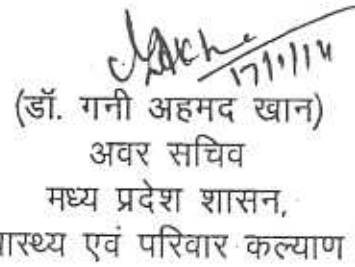 17/1/14
(डॉ. गनी अहमद खान)
अवर सचिव
मध्य प्रदेश शासन,
एवं परिवार कल्याण